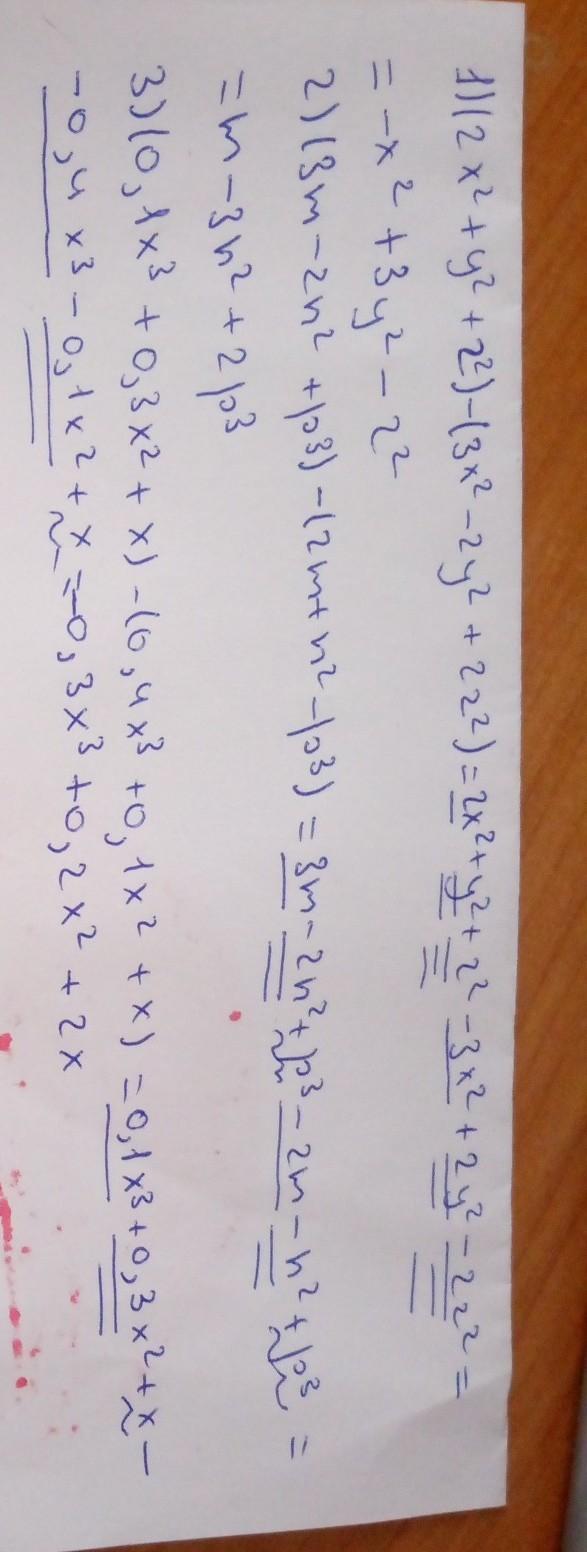 1)(2x²+y²+z²)-(3x²-2y²+2z²)=2x²+y²+z²-3x²+2y²-2z²=
=-x²+3y²-z²
2)(3m-2n²+p³)-(2m+n²-p³)=3m-2n²+p³-2m-n²+p³=
=m-3n²+2p³
3)(0,1x³+0,3x²+x)-(0,4x³+0,1x²+x)=0,1x³+0,3x²+x-
-0,4x³-0,1x²+x=-0,3x³+0,2x²+2x